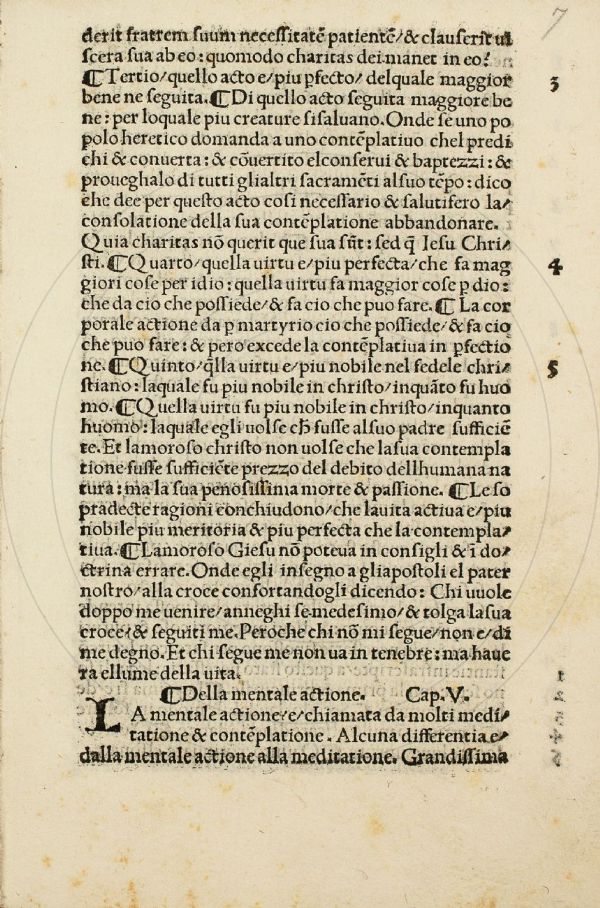 7
derit fratrem suum necessitatē patientē/& clauserit ui
scera sua ab eo: quomodo charitas dei manet in eo?
¶Tertio/quello acto e/piu ꝑfecto/ delquale maggior
3
bene ne seguita.¶Di quello acto seguita maggiore be
ne: per loquale piu creature si saluano. Onde se uno po
polo heretico domanda a uno contēplatiuo chel predi
chi & conuerta: & cōuertito elconserui & baptezzi: &
proueghalo di tutti glialtri sacramēti alsuo tēpo: dico
che dee per questo acto cosi necessario & salutifero la
consolatione della sua contēplatione abbandonare.
Quia charitas nō querit que sua sūt: sed q̄ Iesu Chri/
sti.¶Quarto/quella uirtu e/piu perfecta/che fa mag
4
giori cose per idio: quella uirtu fa maggior cose ꝑ dio:
che da cio che possiede/& fa cio che puo fare.¶ La cor
porale actione da ꝑ martyrio cio che possiede/& fa cio
che puo fare: & pero excede la contēplatiua in ꝑfectio
ne.¶Quinto/q̄lla uirtu e/piu nobile nel fedele chri/
5
stiano: laquale fu piu nobile in christo/inquāto fu huo
mo.¶Quella uirtu fu piu nobile in christo/inquanto
huomo: laquale egli uolse ch̄ fusse alsuo padre sufficiē
te. Et lamoroso christo non uolse che lasua contempla
tione fusse sufficiēte prezzo del debito dellhumana na
tura: ma la sua penosissima morte & passione. ¶Le so
pradecte ragioni conchiudono/che lauita actiua e/piu
nobile piu meritoria & piu perfecta che la contempla/
tiua.¶Lamoroso Giesu nō poteua in consigli & ī do/
ctrina errare. Onde egli insegno a gliapostoli el pater
nostro/alla croce confortandogli dicendo: Chi uuole
doppo me uenire/anneghi se medesimo/& tolga lasua
croce/& seguiti me. Peroche chi nō mi segue/non e/di
me degno. Et chi segue me non ua in tenebre: ma haue
ra ellume della uita.
¶Della mentale actione. Cap.V.
LA mentale actione/e/chiamata da molti medi/
tatione & contēplatione. Alcuna differentia e/
dalla mentale actione alla meditatione. Grandissima